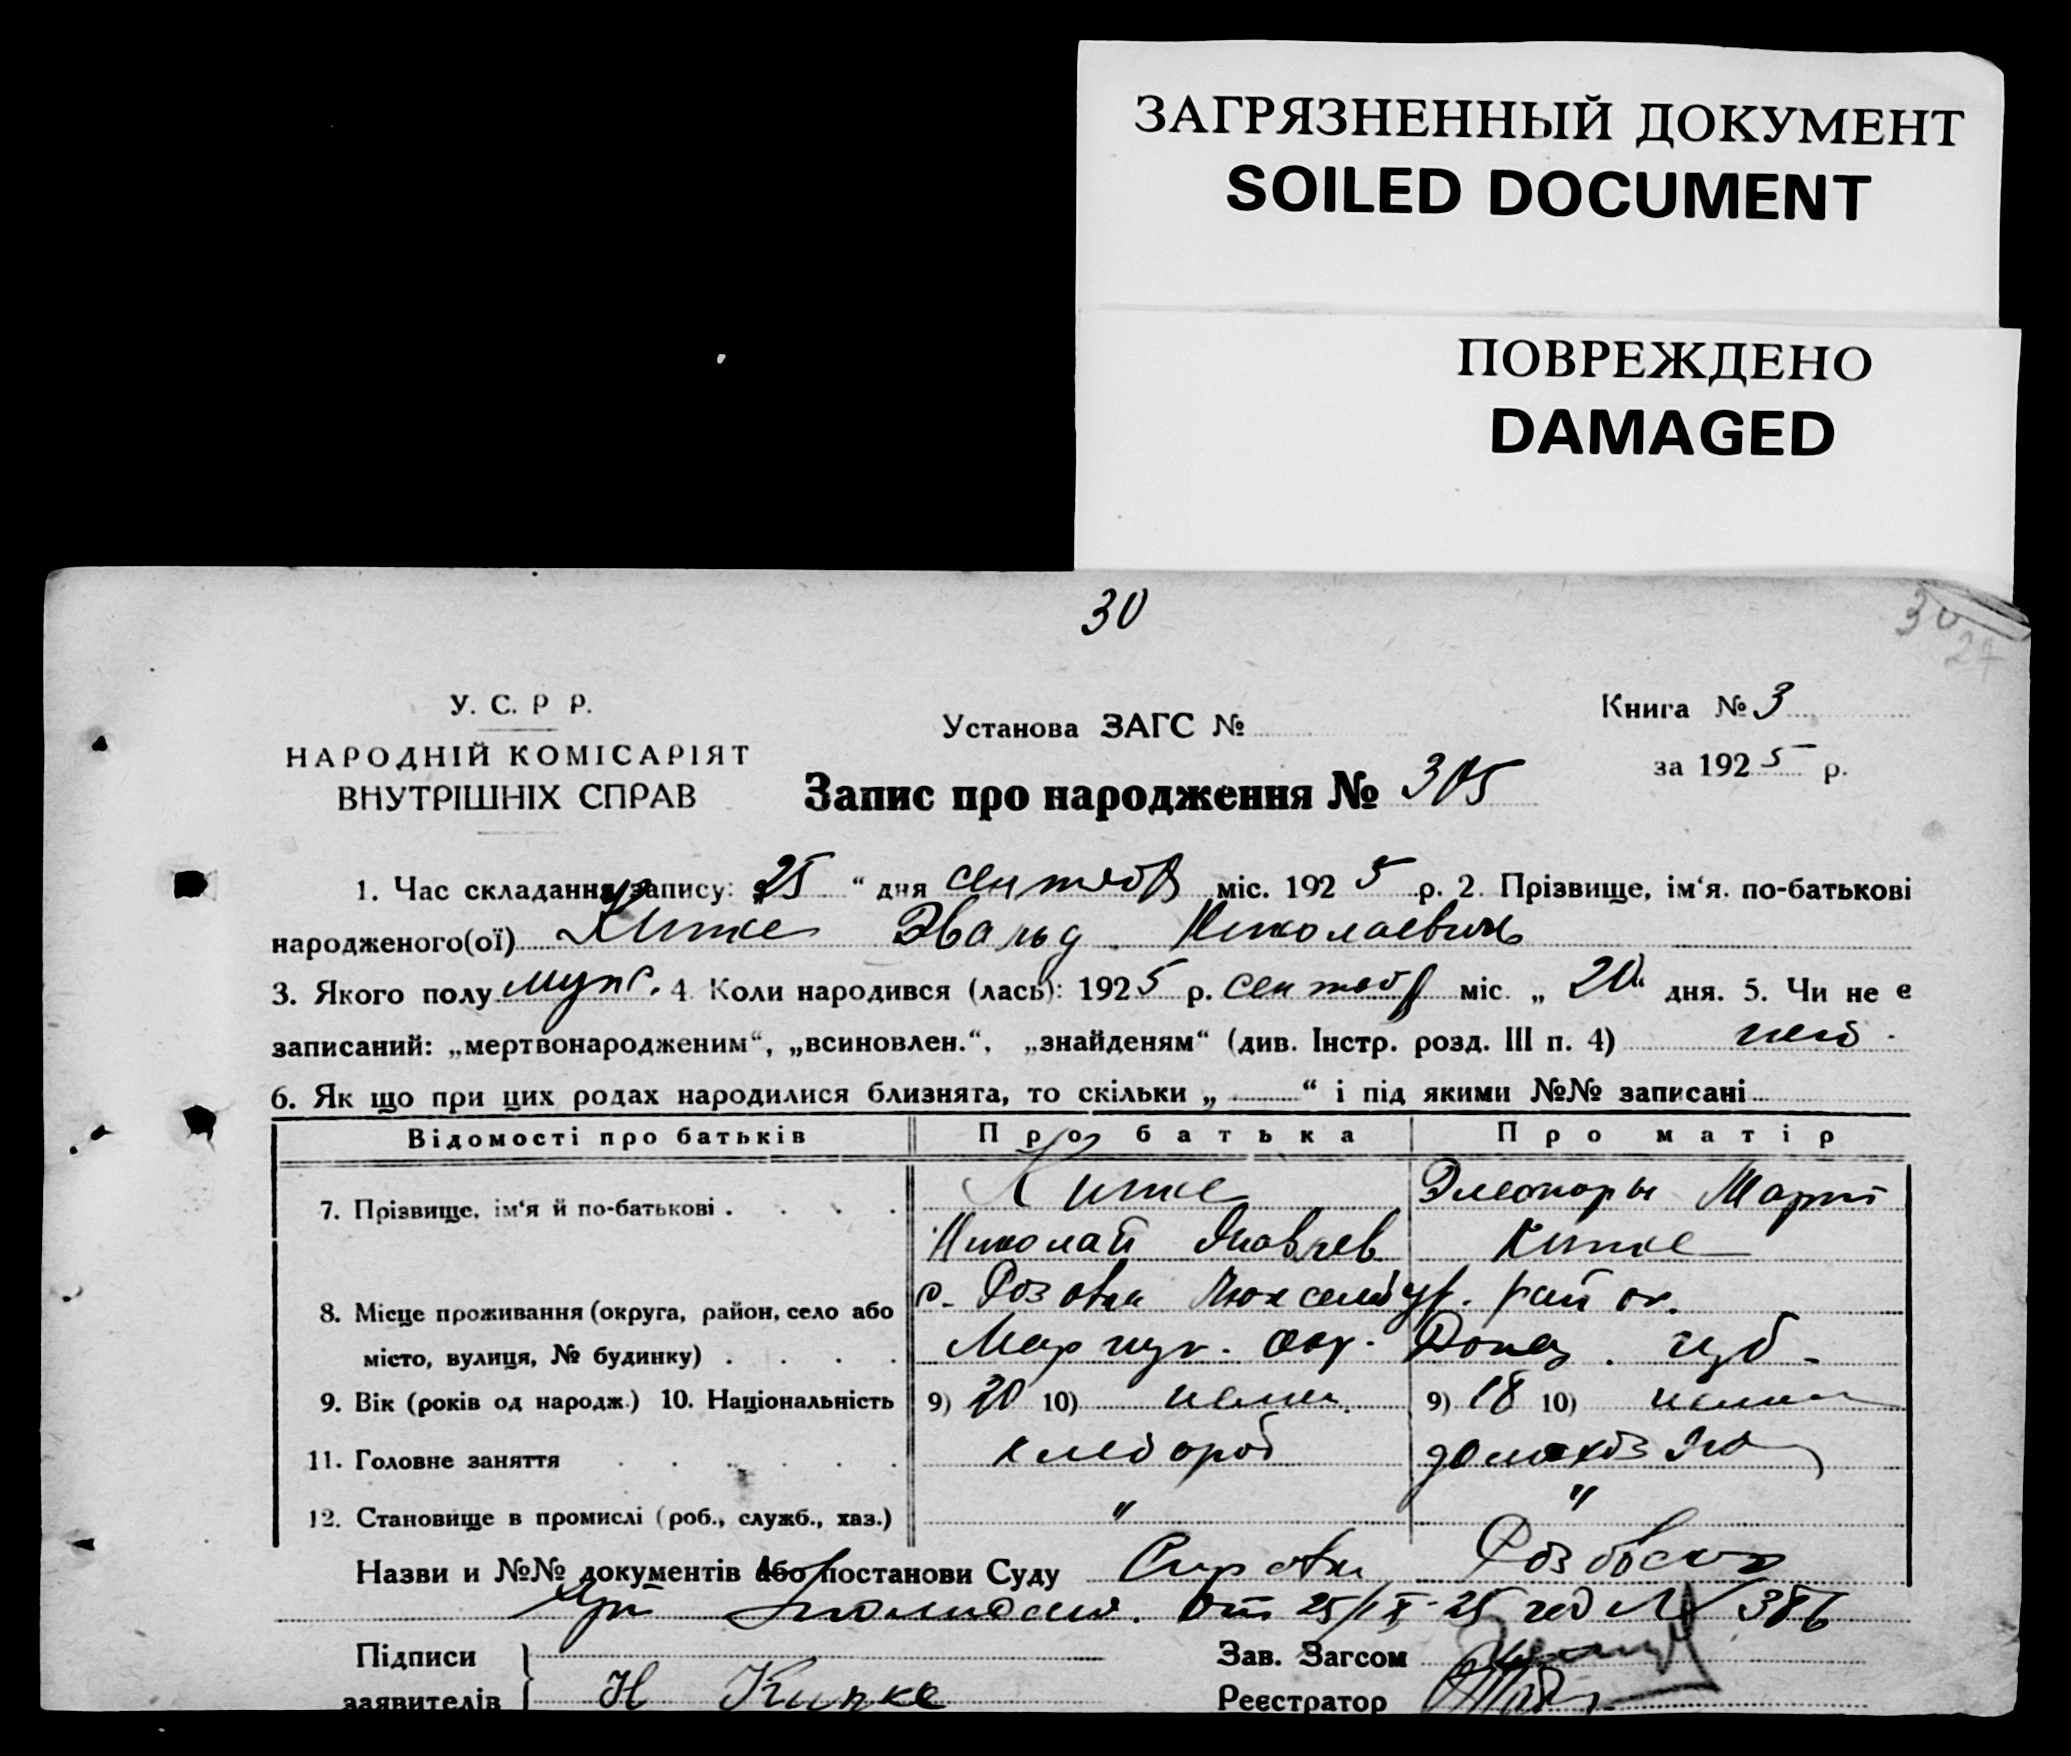 ЗАГРЯЗНЕННЫЙ ДОКУМЕНТ
SOILED DOCUMENT
ПОВРЕЖДЕНО
DAMAGED
30
30
27
У. С. Р Р.
НАРОДНІЙ КОМІСАРІЯТ
ВНУТРІШНІХ СПРАВ
Установа ЗАГС №
Запис про народження № 305
Книга № 3
за 1925 р.
1. Час складання запису: „25“ дня сентябр міс. 1925 р. 2. Прізвище, ім‘я. по-батькові
народженого(ої) Эвальд Николаевич
3. Якого полу муж. 4. Коли народився (лась): 1925 р. сентябр міс. „20“ дня. 5. Чи не є
записаний: „мертвонародженим“, „всиновлен.“, „знайденям“ (див. Інстр. розд. III п. 4)
6. Як що при цих родах народилися близнята, то скільки „ “ і під якими №№ записані
Відомості про батьків Про батька Про матір
7. Прізвище, ім‘я й по-батькові . . . .
Элеоноры Март
Николай Яковлев
8. Місце проживання (округа, район, село або
с. Розовка Люксембург. район.
місто, вулиця, № будинку) . . . . Мариуп. окр. Донец. губ.
9. Вік (років од народж.) 10. Національність 9) 20 10) немец. 9) 18 10) немец
11. Головне заняття . . . . . . хлебороб домохоз
12. Становище в промислі (роб., служб., хаз.) " "
Назви и №№ документів або постанови Суду Справки Розовск
От 25/IX-25 год № 386
Підписи
заявителів Н
Зав. Загсом
Реєстратор